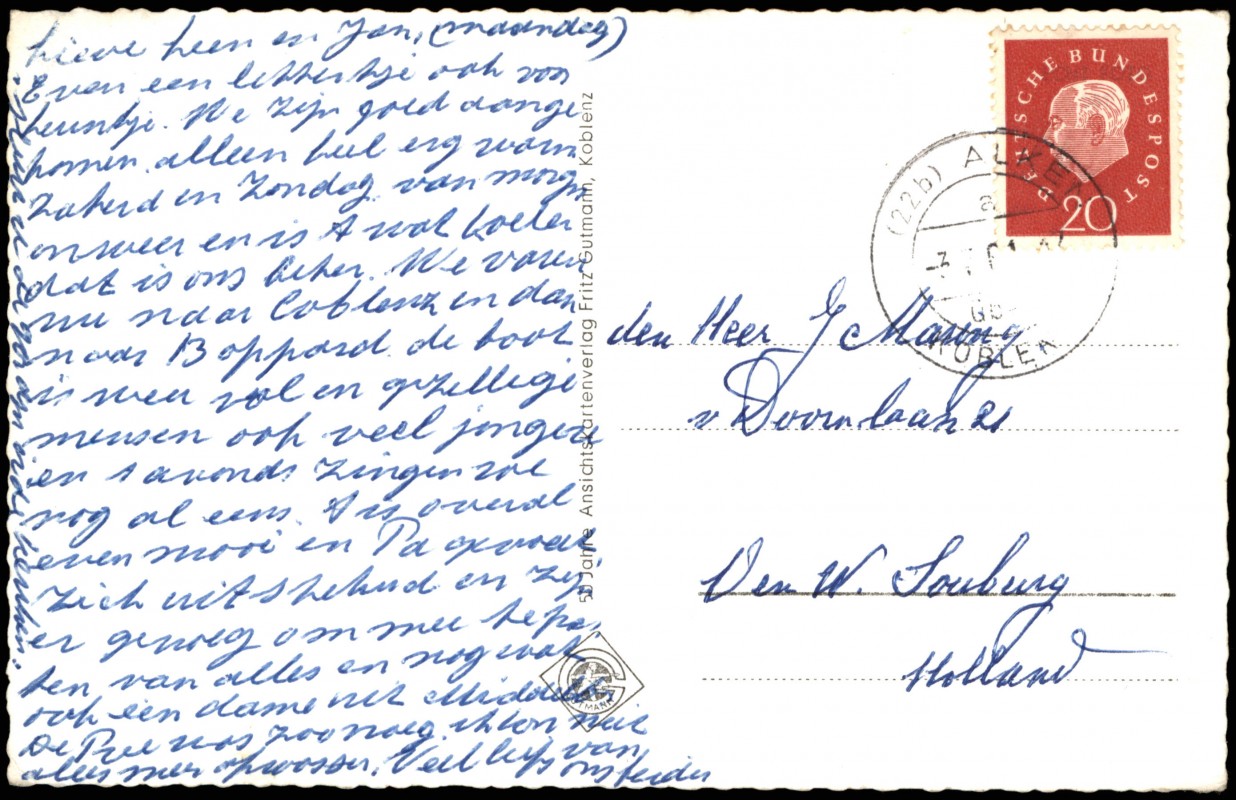 Lieve Leen en Jan, (maandag)
Even een lettertje ook voor
Leuntje. We zijn goed aange
komen alleen heel erg warm
Zaterd en Zondag van morgen
onweer en is t wat koeler
dat is ons beter. We varen
nu naar Coblenz en dan
naar Boppard de boot
is weer vol en gezellige
mensen ook veel jongere
en s avonds zingen we
nog al eens. t is overal
even mooi en Pa
zich uitstekend en zijn
er genoeg om mee te pra
ten van alles en nog wat
ook een dame uit Middelb.
De Pree was zoo noeg. ik kon niet
alles meer op wassen. Veel liefs van ons beiden
50 Jahre Ansichtskartenverlag Fritz Gutmann, Koblenz
GUTMANN
DEUTSCHE BUNDESPOST
20
(22b) ALKEN
a
KOBLEN
den Heer J Maring
v Doornlaan 21
Den W. Souburg
Holland